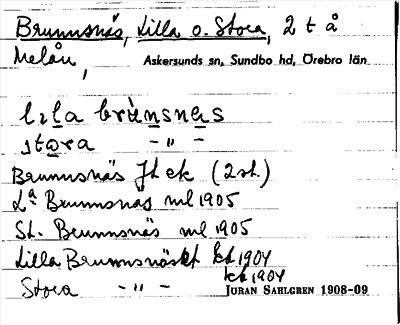 Brunnsnäs, Lilla o. Stora, 2 t å
Melån, Askersunds sn, Sundbo hd, Örebro län
stora - " -
Brunnsnäs Jb ek (2 st.)
La Brunnsnäs ml 1905
St. Brunnsnäs ml 1905
Lilla Brunnsnäs kt 1904
Stora - " - kt 1904
JÖRAN SAHLGREN 1908-09